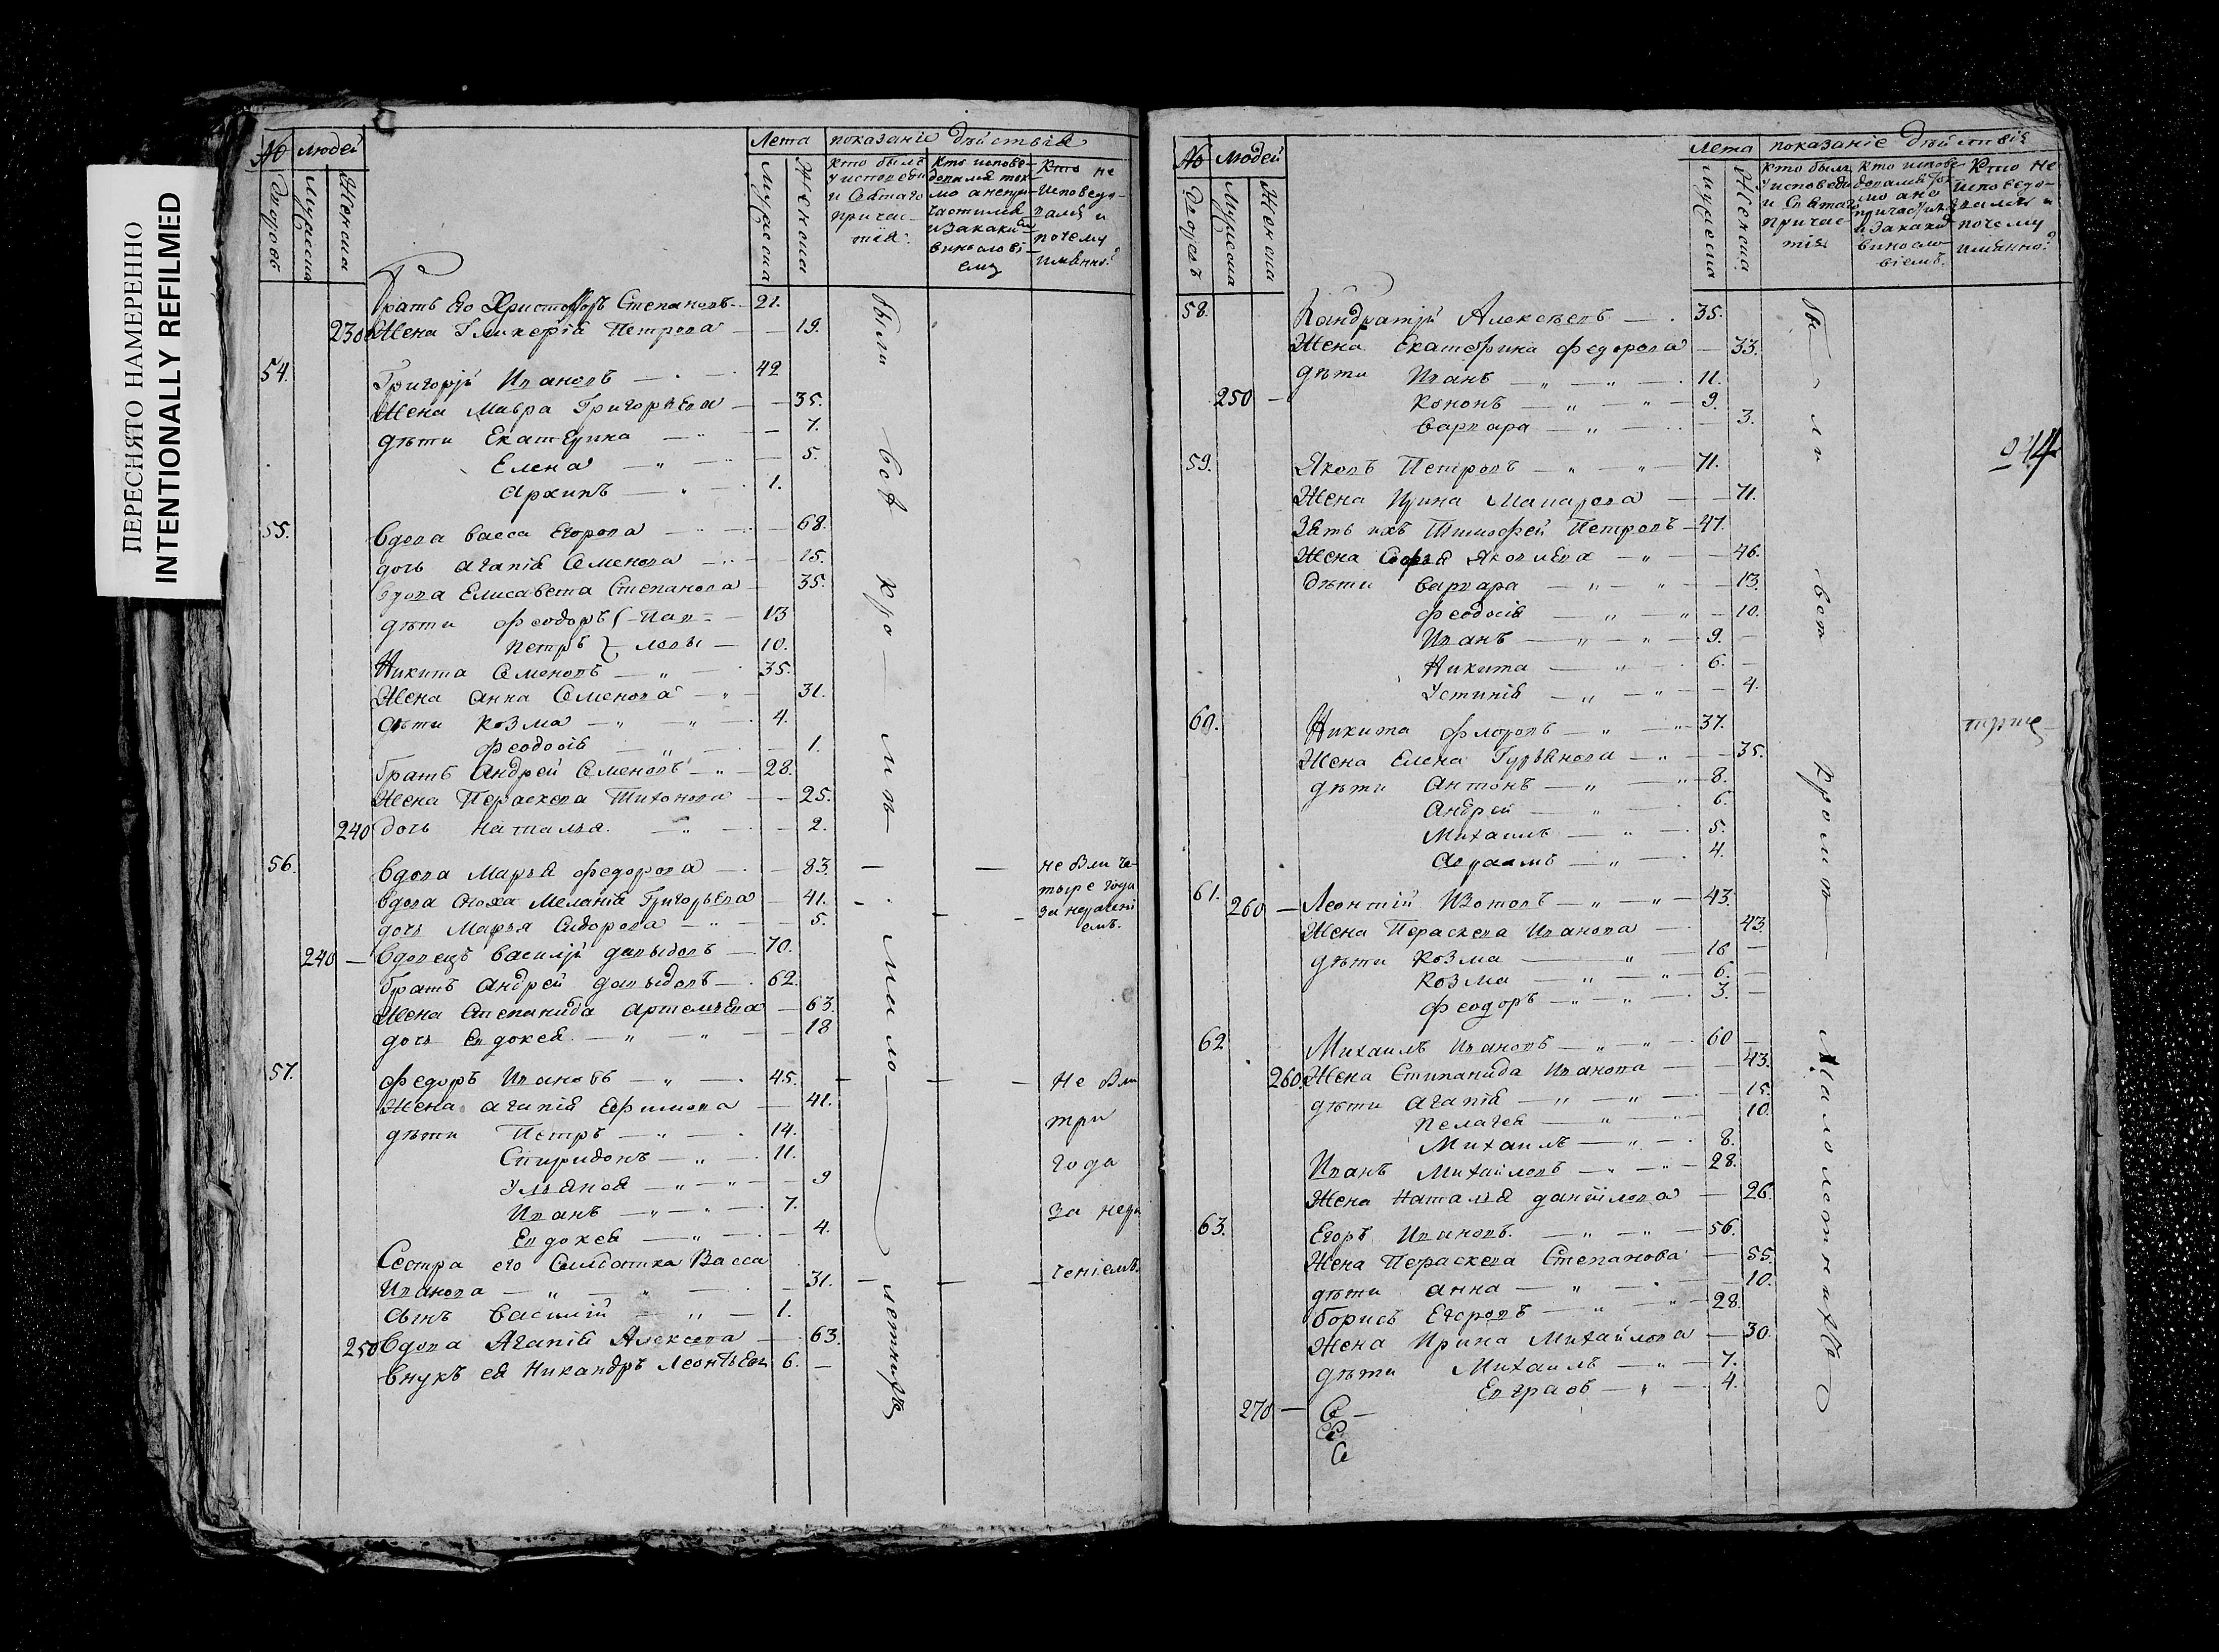 ПЕРЕСНЯТО НАМЕРЕННО
INTENTIONALLY REFILMED
№ людей Лета показаніе действія
дворовъ Мужеска Женска Мужеска Женска
кто былъ у исповеди и Святаго причастія.
кто исповедовался токмо а непричастился и за каким винословіемъ
Кто не исповедовался и почему имянно?
Братъ Его Христофоръ Степановъ 21.
230 Жена Гликерія Петрова 19.
54. Григорій Ивановъ 42
Жена Мавра Григорьева 35.
дѣти Екатерина 7.
Елена 5.
Архипъ 1.
55. Вдова Васса Егорова 68.
дочь Агапія Семенова 25.
Вдова Елисавета Степанова 35.
дѣти Феодоръ Пав= 13
Петръ ловы 10.
Никита Семеновъ 35.
Жена Анна Семенова 31.
дѣти Козма 4.
Феодосія 1.
Братъ Андрей Семеновъ 28.
Жена Параскева Тихонова 25.
240 дочь Наталья 2.
56. Вдова Марья Федорова 83. не были че-
Вдова сноха Меланія Григорьева 41. тыре года
дочь Марья Сидорова 5. за нерачені
емъ.
240 Вдовецъ Василій Давыдовъ 70.
Братъ Андрей Давыдовъ 62.
Жена Степанида Артемьева 63.
дочь Евдокея 18
57. Федоръ Ивановъ 45. Не были
Жена Агапія Ефимова 41.
дѣти Петръ 14. три
Спиридонъ 11.
Ульяна 9 года
Иванъ 7.
Евдокея 4. за нера
Сестра его Салдатка Васса
Иванова 31. ченіемъ.
сынъ Василій 1.
250 Вдова Агапія Алексева 63.
Внукъ ея Никандръ Леонтьевъ 6.
были все кромѣ малолетнихъ
№ людей Лета показаніе действія
дворовъ Мужеска Женска Мужеска Женска
кто былъ у исповеди и Святаго причастія
кто исповедовался токмо а не причастился и за каким винословіемъ.
Кто не исповедовался и почему имянно?
58. Кандратій Алексѣевъ 35.
Жена Екатерина Федорова 33.
дѣти Иванъ 11.
250 Кононъ 9.
Варвара 3.
59. Яковъ Петровъ 71.
Жена Ирина Макарова 71.
Зять ихъ Тимофей Петровъ 47.
Жена Софья Яковлева 46.
дѣти Варвара 13.
Феодосія 10.
Иванъ 9.
Никита 6.
Устинія 4.
60. Никита Флоровъ 37.
Жена Елена Гурьянова 35.
дѣти Антонъ 8.
Андрей 6.
Михаилъ 5.
Авраамъ 4.
61. 260 Леонтій Изотовъ 43.
Жена Параскева Иванова 43.
дѣти Козма 16
Козма 6.
Феодоръ 3.
62 Михаилъ Ивановъ 60
260. Жена Стипанида Иванова 43.
дѣти Агапія 15.
Пелагея 10.
Михаилъ 8.
Иванъ Михайловъ 28.
Жена Наталья Данійлова 26.
63. Егоръ Ивановъ 56.
Жена Параскева Степанова 55.
дѣти Анна 10.
Борисъ Егоровъ 28.
Жена Ирина Михайлова 30.
дѣти Михаилъ 7.
Евграфъ 4.
270
были все кромѣ Малолетнихъ